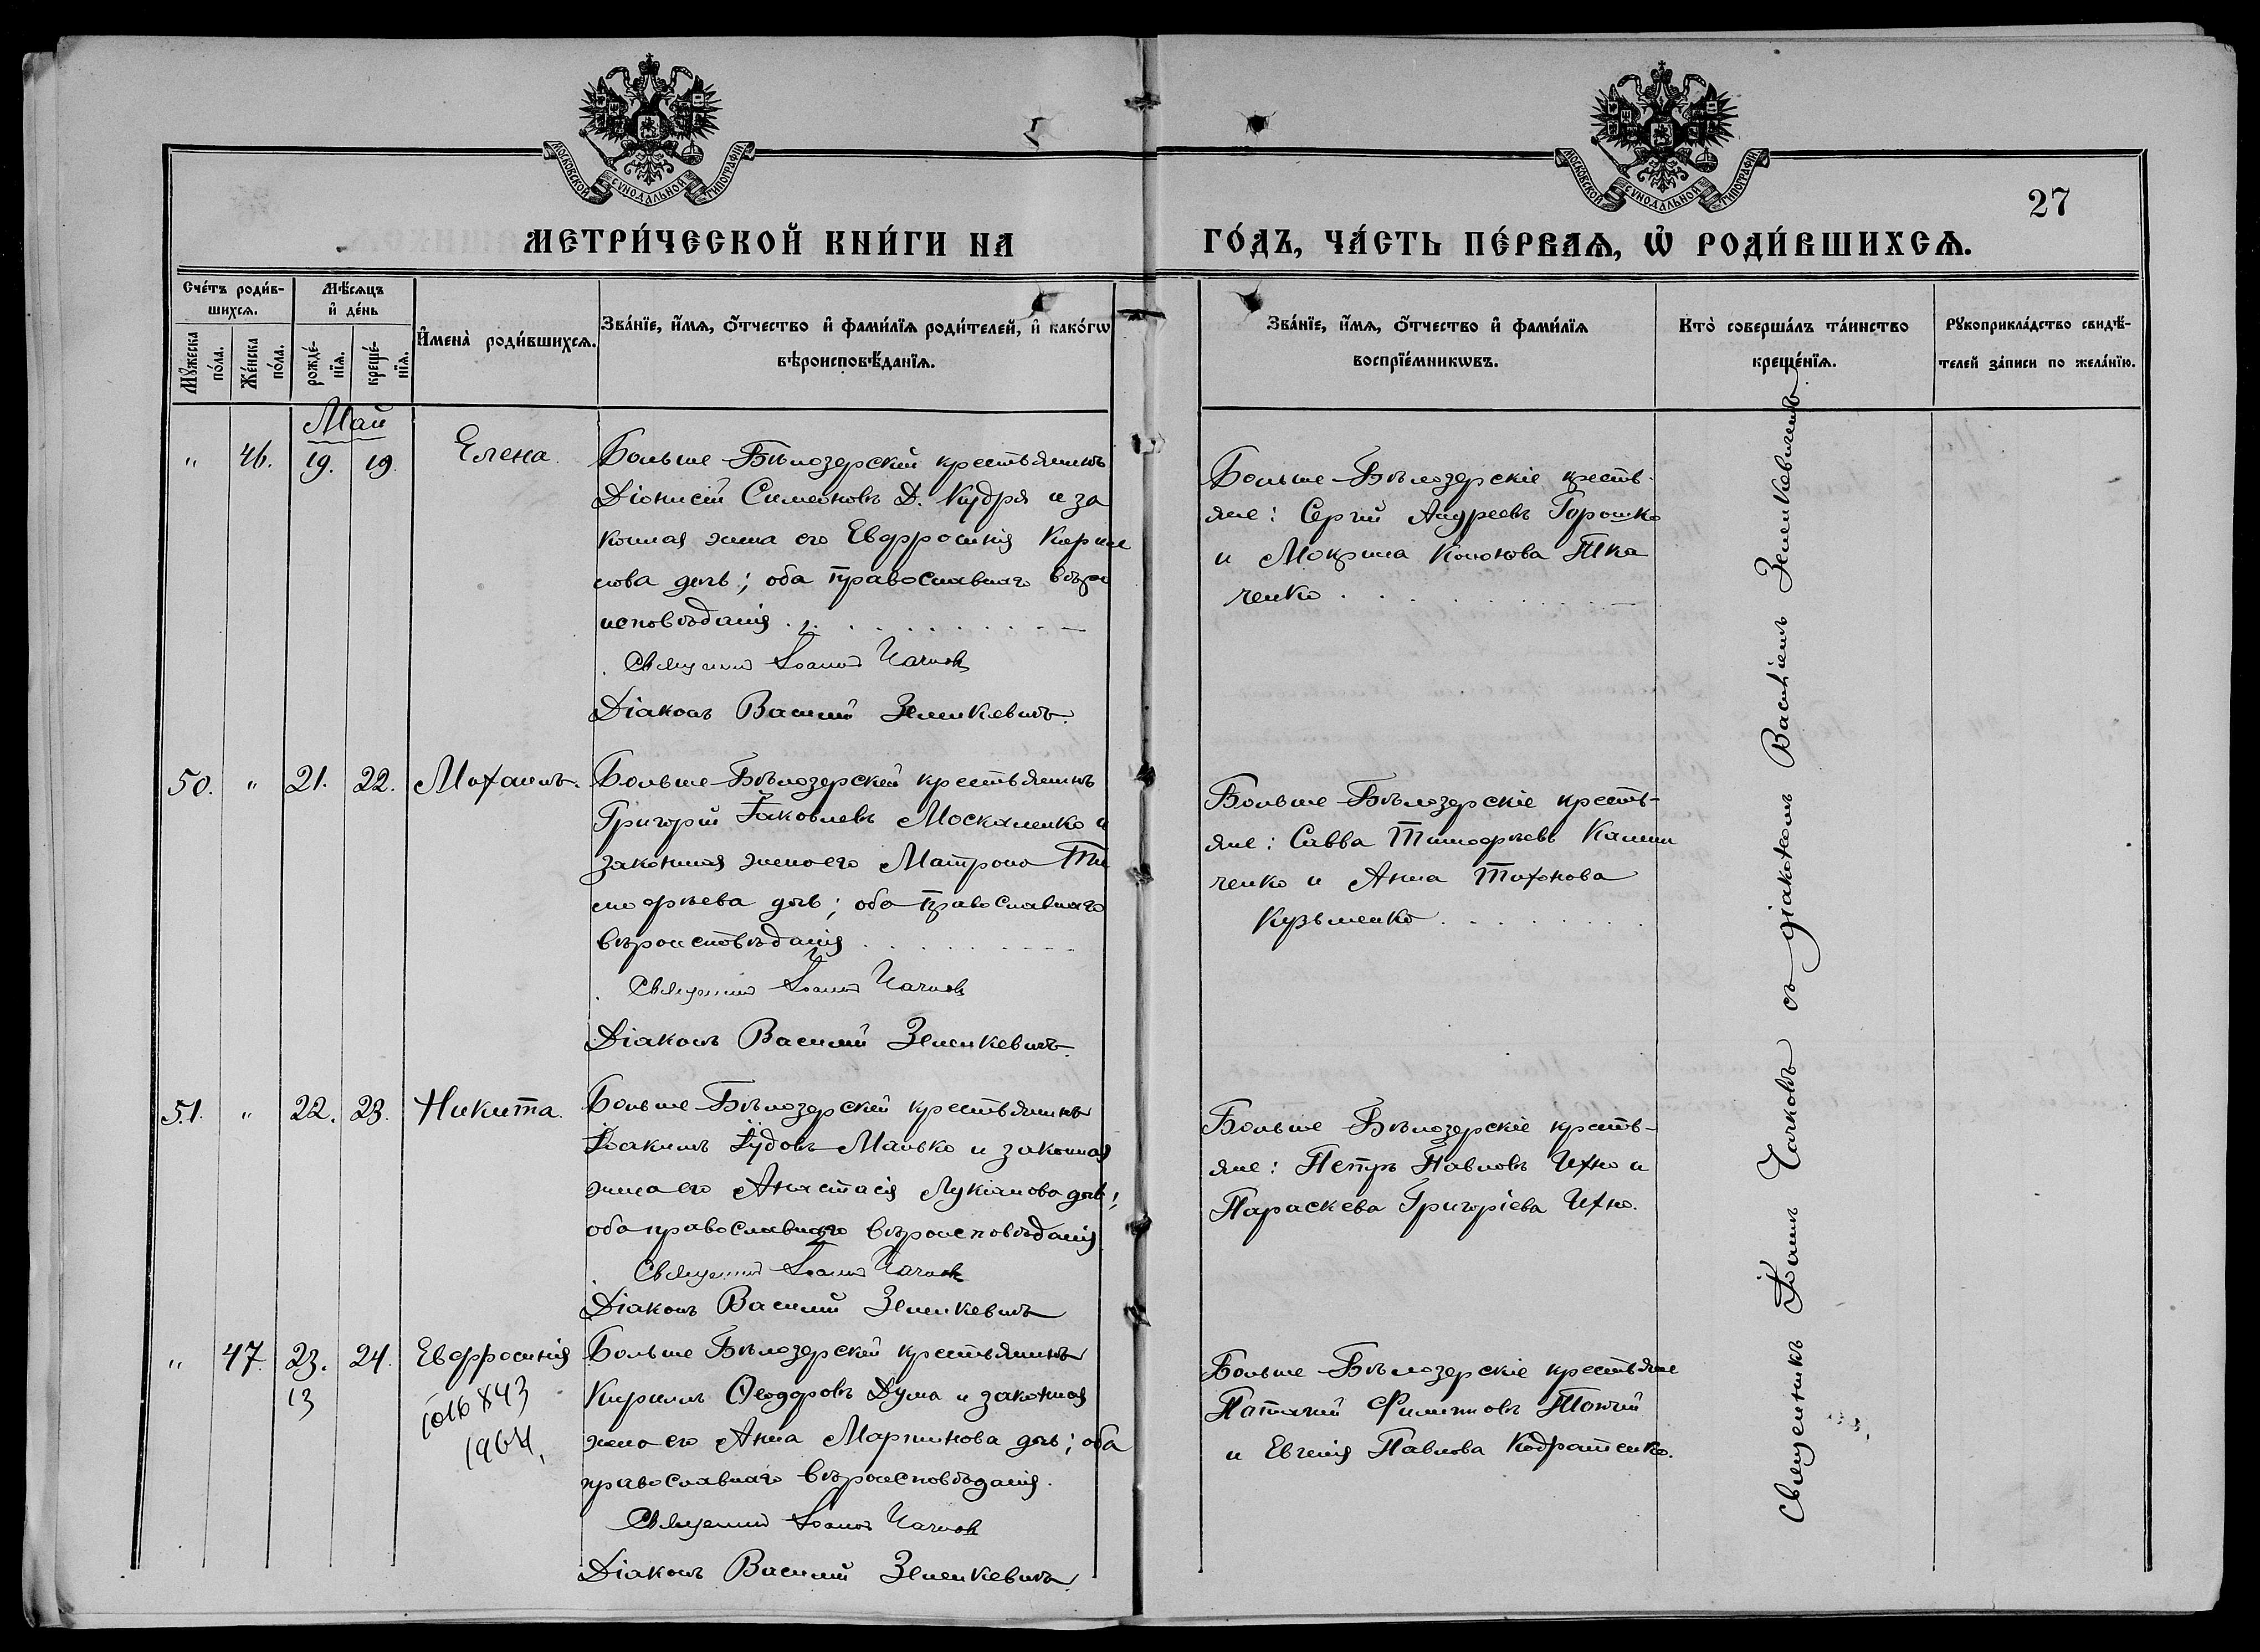 МОСКОВСКОЙ СѴНОДАЛЬНОЙ ТИПОГРАФІИ
МОСКОВСКОЙ СѴНОДАЛЬНОЙ ТИПОГРАФІИ
27
МЕТРИ́ЧЕСКОЙ КНИ́ГИ НА
ГО́ДЪ, ЧА́СТЬ ПЕ́РВАѦ, Ѡ҆ РОДИ́ВШИХСѦ.
Сче́тъ роди́в-
шихсѧ.
Мꙋ́жеска по́ла.
Же́нска по́ла.
Мѣ́сѧцъ
и҆ де́нь
рожде́-нїѧ.
креще́-нїѧ.
И҆мена̀ роди́вшихсѧ.
Зва́нїе, и҆́мѧ, ѻ҆́тчество и҆ фами́лїѧ роди́телей, и҆ како́гѡ
вѣроисповѣ́данїѧ.
Зва́нїе, и҆́мѧ, ѻ҆́тчество и҆ фами́лїѧ
воспрїе́мникѡвъ.
Кто̀ соверша́лъ та́инство
креще́нїѧ.
Рꙋкоприкла́дство свидѣ́-
телей за́писи по жела́нїю.
Май
" 46. 19. 19. Елена.
Больше-Бѣлозерскій крестьянинъ
Діонисій Симеоновъ Д. Кудря и за
конная жена его Евфросинія Корни
лова дочь; оба православнаго вѣро
исповѣданія.
Священникъ Іоаннъ Чачковъ
Діаконъ Василій Зеленкевичъ.
Больше-Бѣлозерскіе кресть-
яне: Сергій Андреевъ Горошко
и Мокрина Кононова Тка
ченко
50. " 21. 22. Михаилъ.
Больше-Бѣлозерскій крестьянинъ
Григорій Іаковлевъ Москаленко и
законная жена его Матрона Ти
мофѣева дочь; оба православнаго
вѣроисповѣданія
Священникъ Іоаннъ Чачковъ
Діаконъ Василій Зеленкевичъ.
Больше-Бѣлозерскіе кресть-
яне: Савва Тимофѣевъ Калини
ченко и Анна Тихонова
Кузьменко
51. " 22. 23. Никита.
Больше-Бѣлозерскій крестьянинъ
Іоакимъ Іудовъ Манько и законная
жена его Анастасія Лукіанова дочь;
оба православнаго вѣроисповѣданія
Священникъ Іоаннъ Чачковъ
Діаконъ Василій Зеленкевичъ
Больше-Бѣлозерскіе кресть-
яне: Петръ Павловъ Ихно и
Параскева Григоріева Ихно.
" 47. 23. 24. Евфросинія
13
1016843
1964,
Больше-Бѣлозерскій крестьянинъ
Кириллъ Ѳеодоровъ Дума и законная
жена его Анна Мартинова дочь; оба
православнаго вѣроисповѣданія.
Священникъ Іоаннъ Чачковъ
Діаконъ Василій Зеленкевичъ.
Больше-Бѣлозерскіе крестьяне
Филипповъ
и Евгенія Павлова Кодратенко.
Священникъ Іоаннъ Чачковъ съ діакономъ Василіемъ Зеленкевичемъ